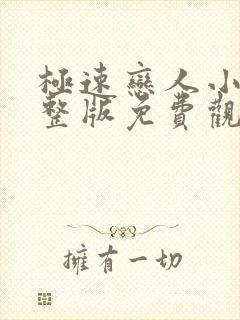 極速戀人小
整版免費觀
擁有一切